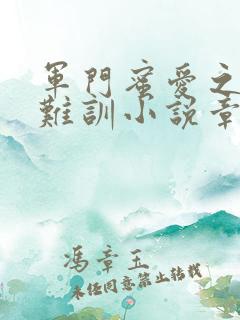 軍門蜜愛之
難訓小說章
馮章玉
未經同意禁止轉載